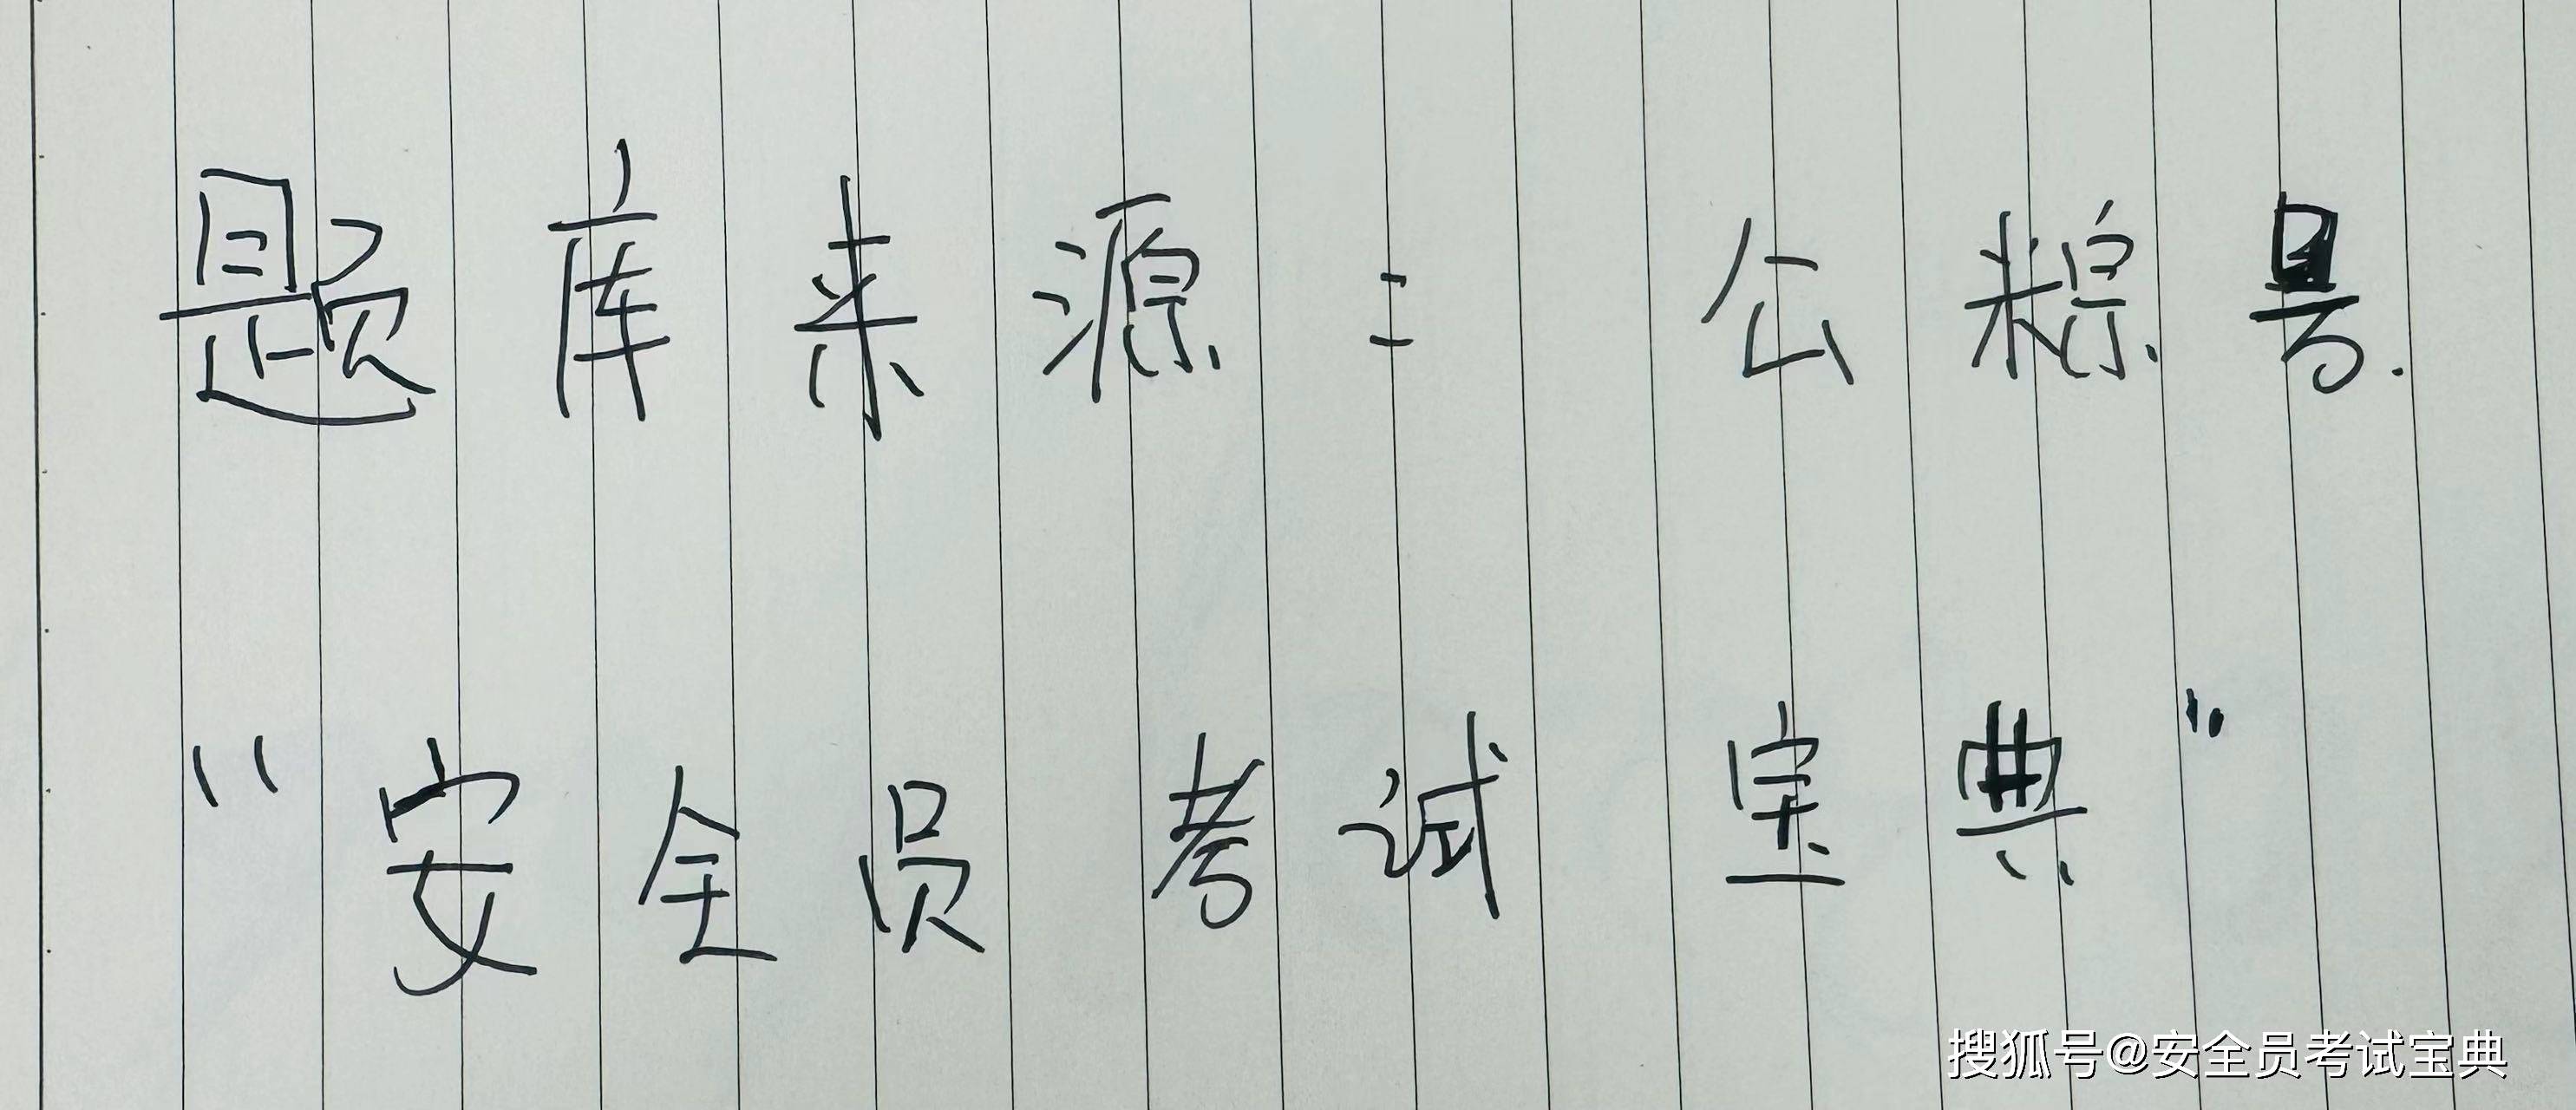 题库来源：公粽号.
“安全员考试宝典”
搜狐号@安全员考试宝典